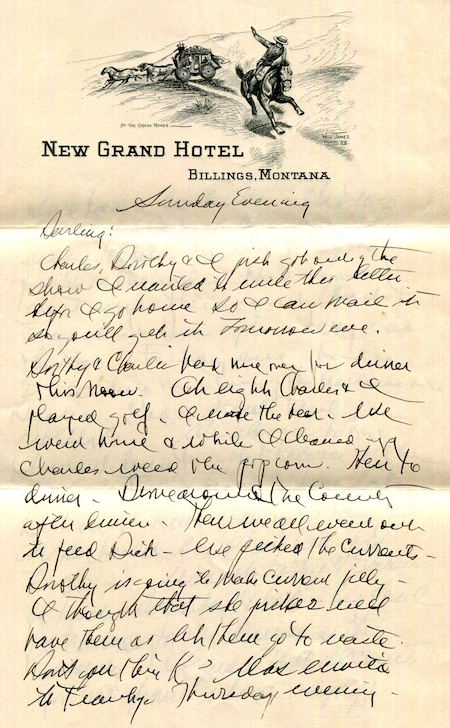 At the Cross Roads
Will James
'28
New Grand Hotel
Billings, Montana
Sunday Evening
Darling:
Charles, Dorothy & I just got out of the
show & wanted to write this letter
before I go home so I can mail it
so you'll get it tomorrow eve.
Dorothy & Charlie had me over for dinner
this noon. At eight Charles & I
played golf. I the best. We
went home & while I cleaned up
Charles the popcorn. Then to
dinner - Drove around the Country
after dinner - Then we all went over
to feed Dick - We picked the currants -
Dorothy is going to make currant jelly -
I thought that she picker
have them as let them go to waste.
Don't you think K - Was
to Thursday evening -